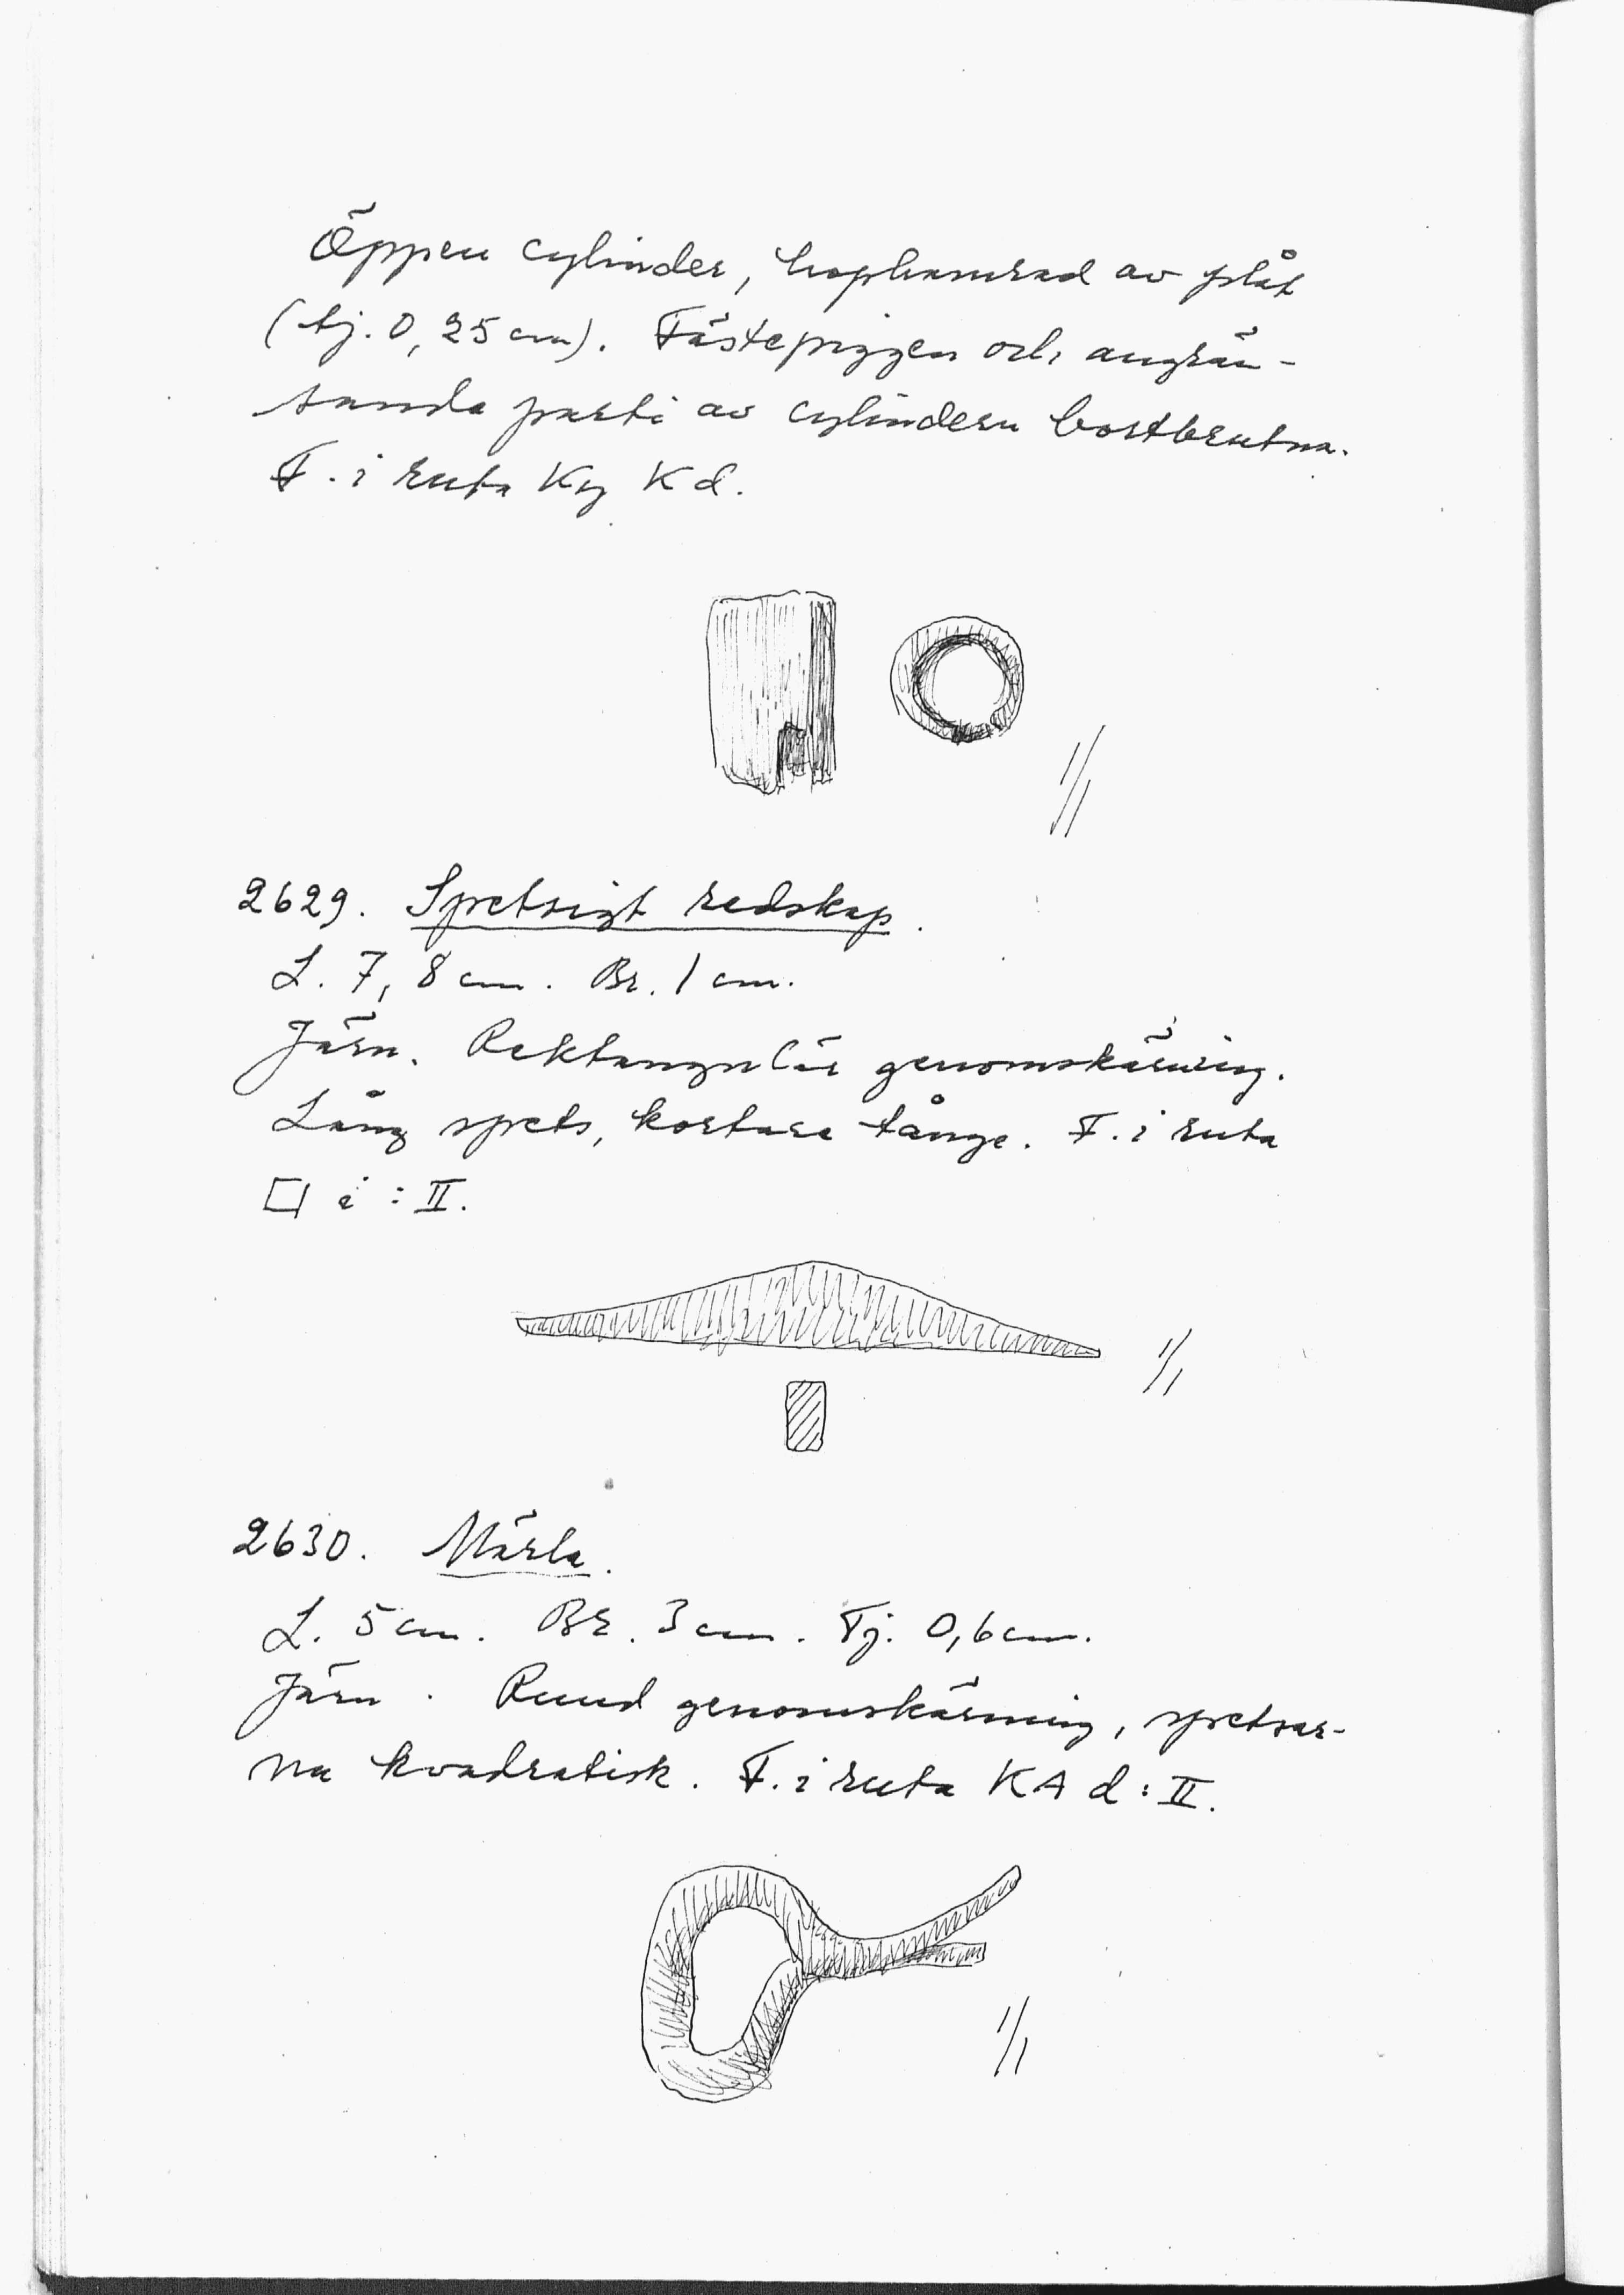 Öppen cylinder, hophamrad av plåt
(tj. 0,25 cm). Fästepiggen och angrän-
sande parti av cylindern bortbrutna.
F. i ruta Kg Kd.
1/1
2629. Spetsigt redskap.
L. 7,8 cm. Br. 1 cm.
Järn. Rektangulär genomskärning.
Lång spets, kortare tånge. F. i ruta
□ i : II.
1/1
2630. Märla.
L. 5 cm. Br. 3 cm. Tj. 0,6 cm.
Järn. Rund genomskärning, spetsar-
na kvadratisk. F. i ruta KA d : II.
1/1